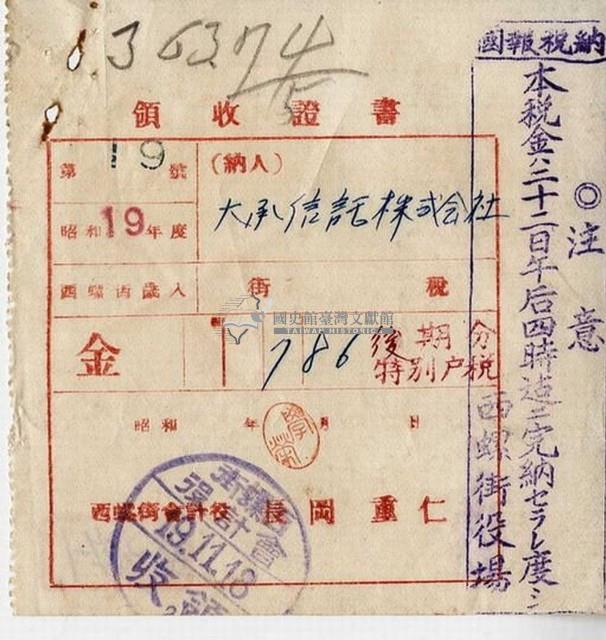 納税報國
◎注意
本税金ハ二十二日午后四時迠ニ完納セラレ度シ
西螺街役場
36374
領收證書
第19號
(納人)
大承信託株式会社
昭和19年度
西螺街歲入
街税
國史館臺灣文獻館
TAIWAN HISTORICA
金
786
後期分
特別戸税
昭和 年 月 日
西螺街會計役 長岡重仁
西螺街
會計役
19.11.18
領收